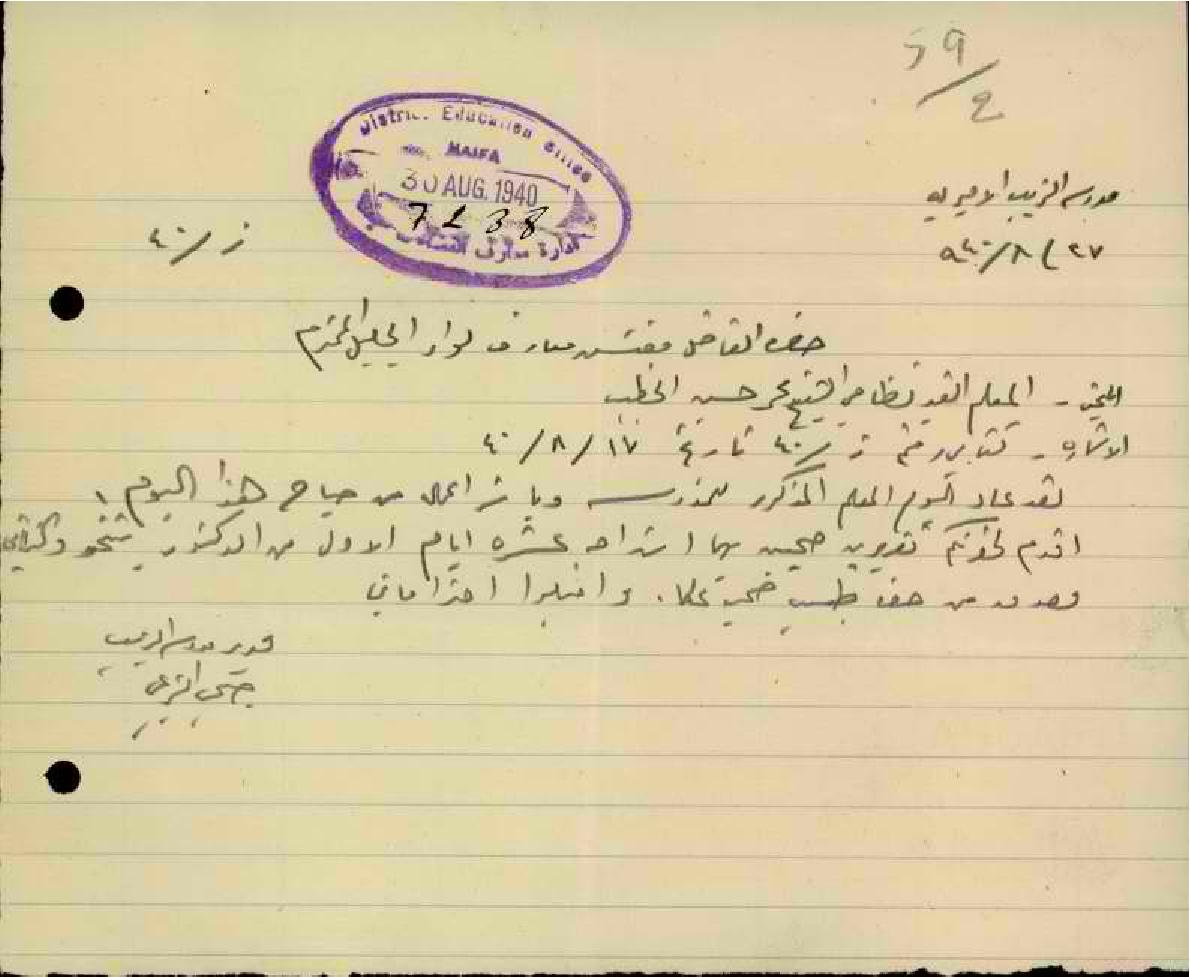 59/4
District Education Office
HAIFA
30 AUG. 1940
7238
ادارة معارف
مدرسة الزيب الاميرية
٢٧/٨/٩٤٠
ز/٤٠
حضرة الفاضل مفتش معارف لواء الجليل المحترم
المعلم الغير نظامي الشيخ محمد حسين الخطيب
الاشارة - كتابي رقم ز/٤٠ تاريخ ١٧/٨/٤٠
لقد عاد اليوم المعلم المذكور للمدرسة وباشر اعماله من صباح هذا اليوم.
اقدم لحضرتكم تقريرين صحيين بهما استراحة عشرة ايام الاول من الدكتور والثاني
مصدق من حضرة طبيب صحية عكا. واقبلوا احتراماتي
مدير مدرسة الزيب